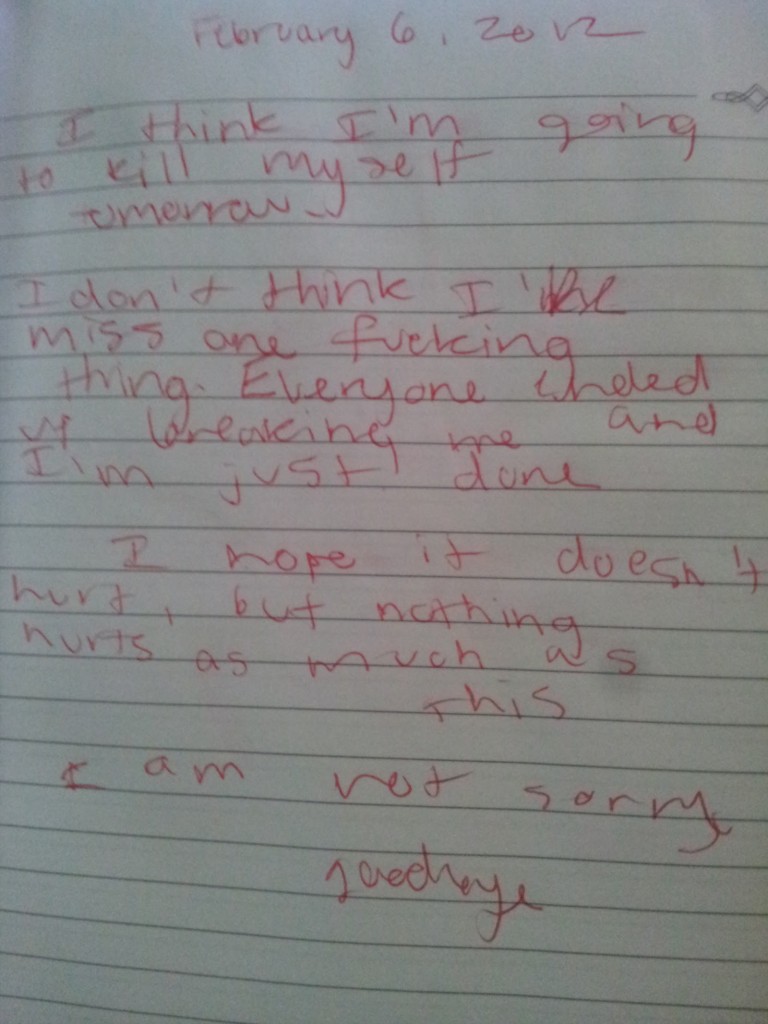 February 6, 2012
I think I'm going
to kill myself
tomorrow..
I don't think I'll
miss one fucking
thing. Everyone ended
up breaking me and
I'm just done
I hope it doesn't
hurt, but nothing
hurts as much as
this
I am not sorry
goodbye